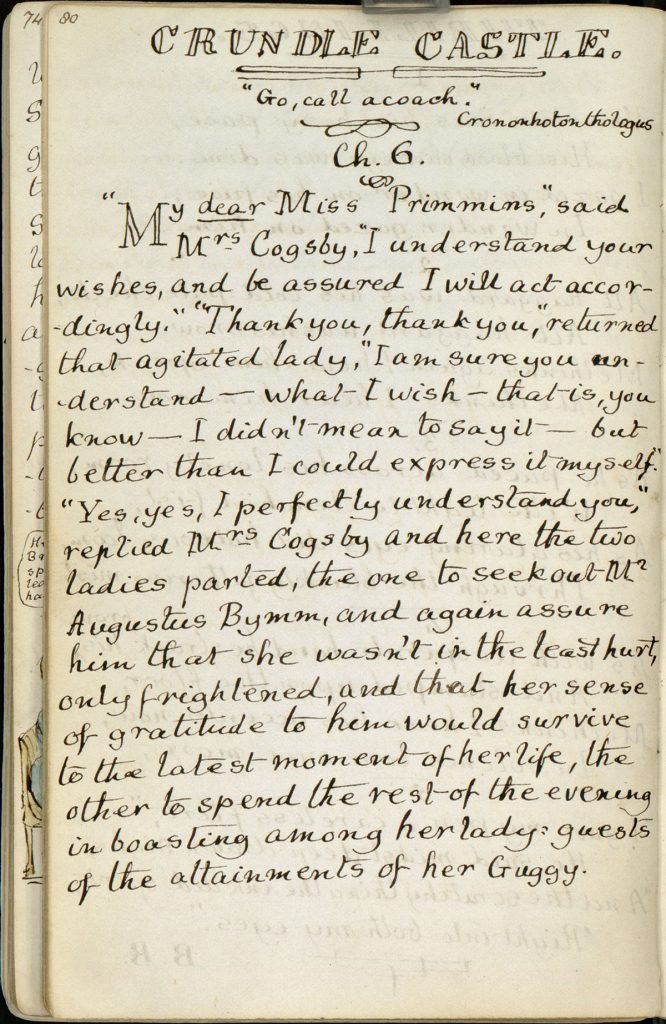 74 80
CRUNDLE CASTLE.
"Go, call a coach."
Crononhotonthologus
Ch. 6.
"My dear Miss Primmins", said
Mrs Cogsby, "I understand your
wishes, and be assured I will act accor-
-dingly." "Thank you, thank you," returned
that agitated lady, "I am sure you un-
-derstand — what I wish — that is, you
know — I didn't mean to say it — but
better than I could express it myself."
"Yes, yes, I perfectly understand you,"
replied Mrs Cogsby and here the two
ladies parted, the one to seek out Mr
Augustus Bymm, and again assure
him that she wasn't in the least hurt,
only frightened, and that her sense
of gratitude to him would survive
to the latest moment of her life, the
other to spend the rest of the evening
in boasting among her lady: guests
of the attainments of her Guggy.